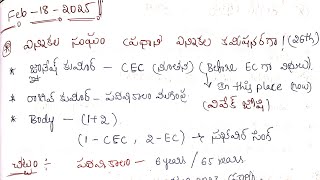 Feb-18-2025
* ఎన్నికల సంఘం (ప్రధాన ఎన్నికల కమిషనర్‌గా) (26th)
* జ్ఞానేష్ కుమార్ - CEC (నూతన) (Before EC గా విధులు)
→ On this place (now)
* రాజీవ్ కుమార్ - పదవీకాలం ముగింపు (వివేక్ జోషి)
* Body - (1+2)
(1-CEC, 2-EC) → సుఖ్‌బీర్ సింగ్
చట్టం :- పదవీకాలం - 6 years / 65 years
2023